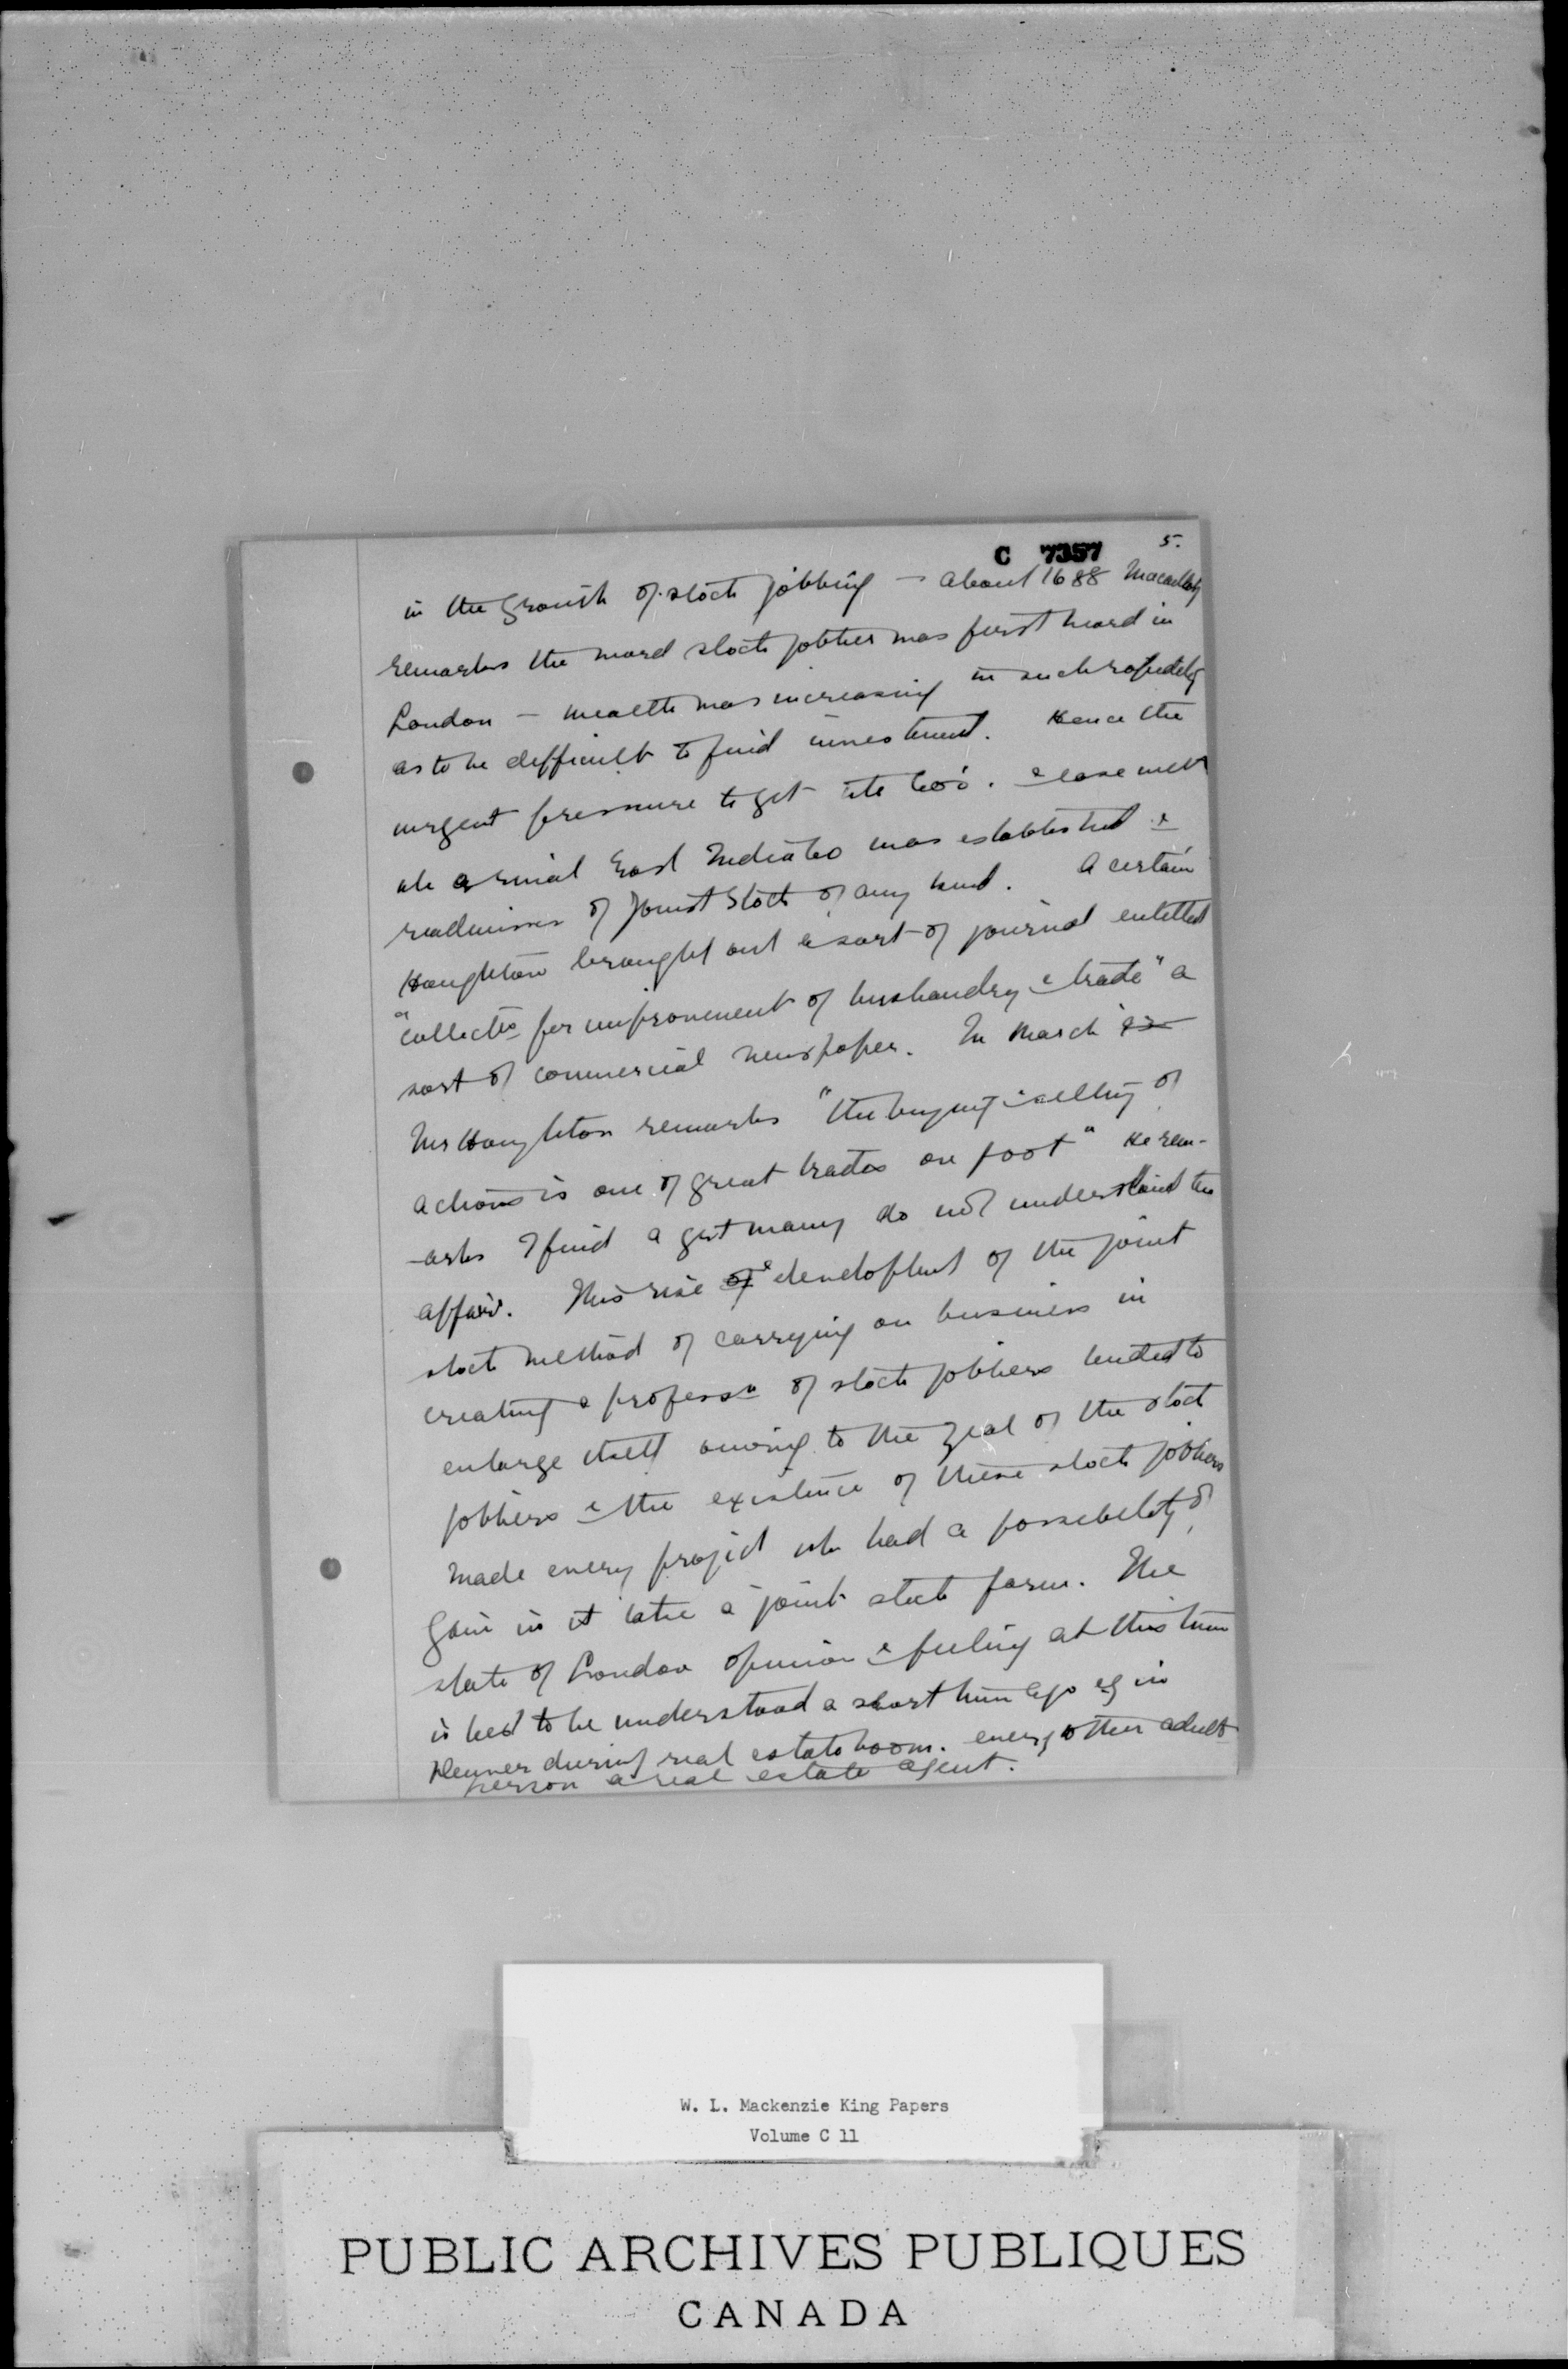 C 7357 5.
in the growth of stock jobbing - about 1688 Macaulay
remarks the word stock jobber was first heard in
London - wealth was increasing in such rapidity
as to be difficult to find investment. Hence the
urgent pressure to get into Co's. & ease with
wh a rival East India Co was established &
readiness of Joint Stock of any kind. A certain
Houghton brought out a sort of journal entitled
"collectn for improvement of husbandry & trade" a
sort of commercial newspaper. In March
Mr Houghton remarks "the buying & selling of
actions is one of great trades on foot" He rem-
-arks I find a gt many do not understand the
affair. This rise of & developmt of the joint
stock method of carrying on business in
creating a professn of stock jobbers tended to
enlarge itself owing to the zeal of the stock
jobbers & the existence of these stock jobbers
made every project wh had a possibility of
gain in it take a joint stock form. The
state of London opinion & feeling at this time
is best to be understood a short time ago eg in
Denver during real estate boom. every other adult
person a real estate agent.
W. L. Mackenzie King Papers
Volume C 11
PUBLIC ARCHIVES PUBLIQUES
CANADA